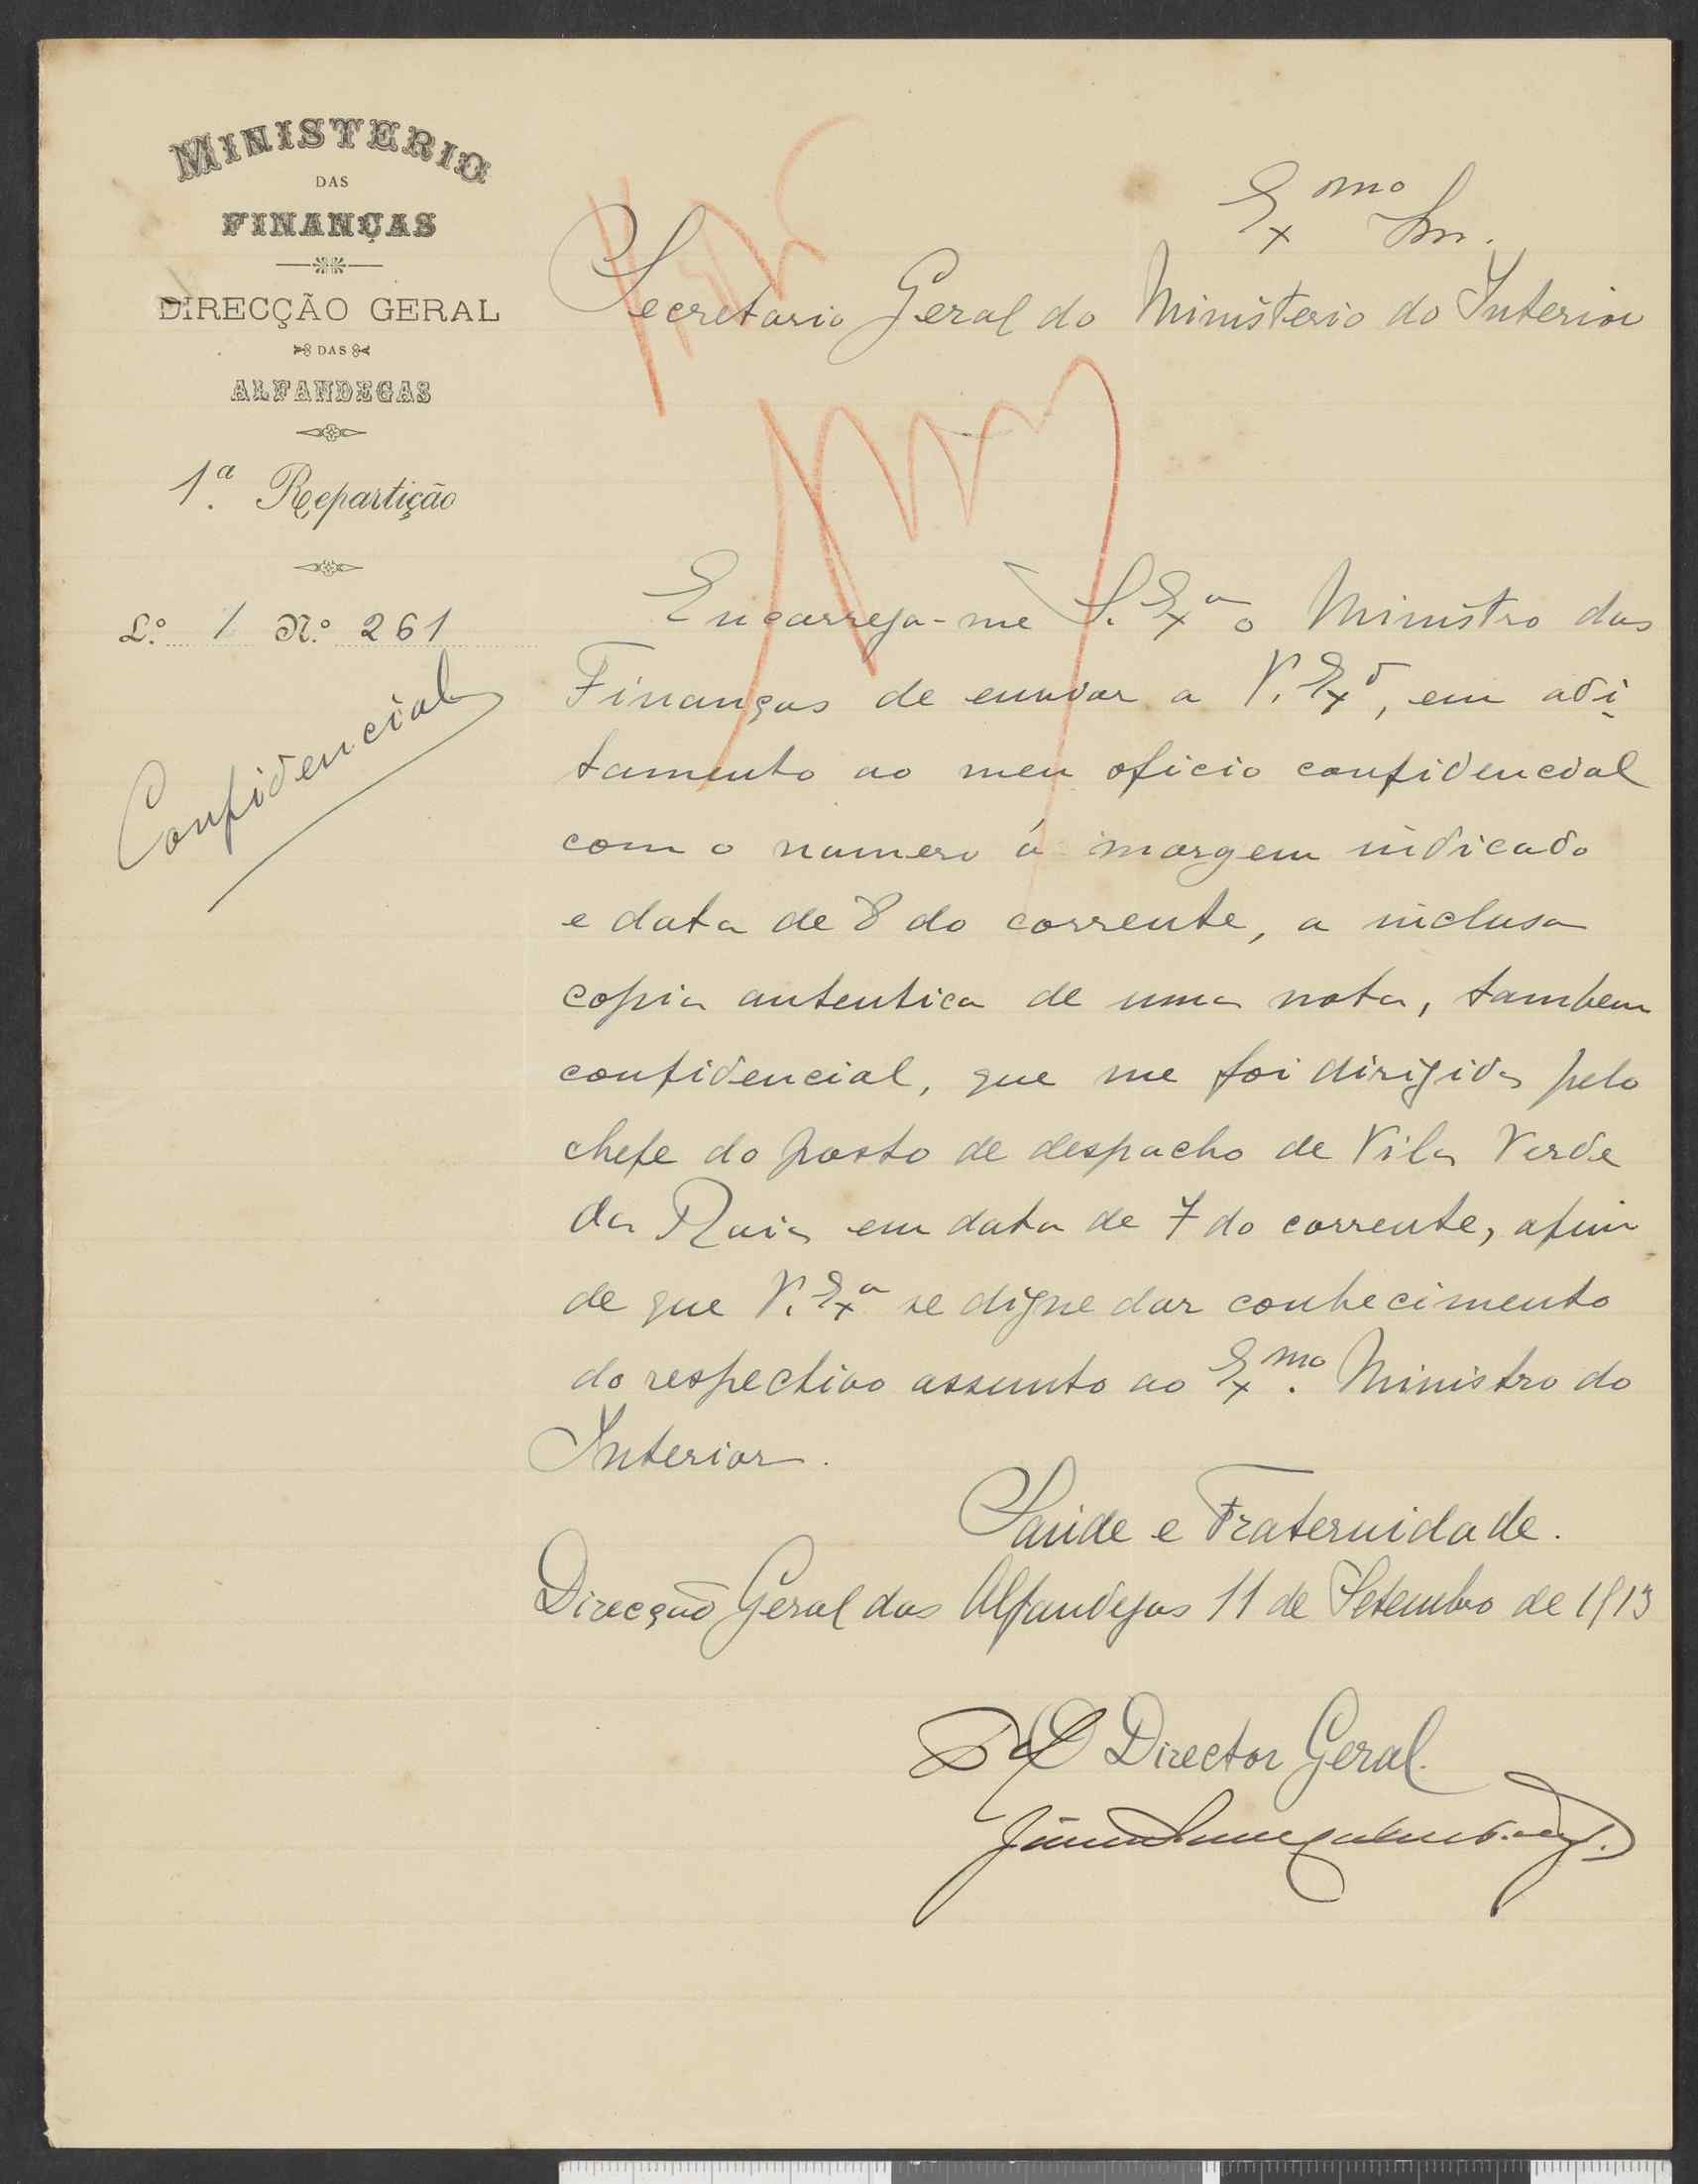 MINISTERIO
DAS
FINANÇAS
DIRECÇÃO GERAL
DAS
ALFANDEGAS
1.ª Repartição
L.º 1 N.º 261
Confidencial
Ex.mo Snr.
Secretario Geral do Ministerio do Interior
Encarrega-me S. Ex.ª o Ministro das
Finanças de enviar a V. Ex.ª, em adi-
tamento ao meu oficio confidencial
com o numero á margem indicado
e data de 8 do corrente, a inclusa
copia autentica de uma nota, tambem
confidencial, que me foi dirigida pelo
chefe do posto de despacho de Vila Verde
da Raia em data de 7 do corrente, afim
de que V. Ex.ª se digne dar conhecimento
do respectivo assunto ao Ex.mo Ministro do
Interior.
Saúde e Fraternidade.
Direcção Geral das Alfandegas 11 de Setembro de 1913
O Director Geral.